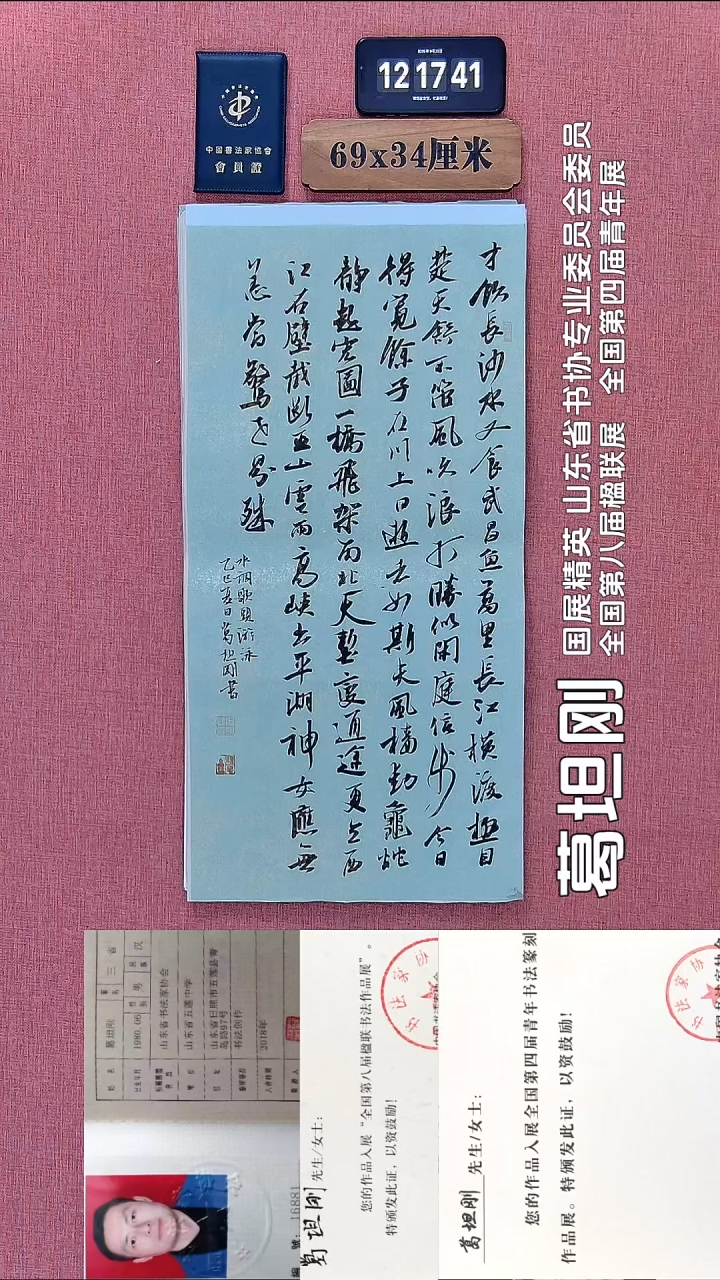 中国书法家协会
会員證
12 17 41
69x34厘米
才飲長沙水又食武昌魚萬里長江橫渡極目
楚天舒不管風吹浪打勝似閑庭信步今日
得寬餘子在川上曰逝者如斯夫風檣動龜蛇
靜起宏圖一橋飛架南北天塹變通途更立西
江石壁截斷巫山雲雨高峽出平湖神女應無
恙當驚世界殊
水調歌頭游泳
乙巳夏日葛坦剛書
葛坦刚
国展精英 山东省书协专业委员会委员
全国第八届楹联展 全国第四届青年展
葛坦刚
性别 男
民族 汉
1980.06
山东省书法家协会
山东省五莲中学
书法创作
2018年
編號：16881
葛坦刚 先生/女士：
您的作品入展“全国第八届楹联书法作品展”。
特颁发此证，以资鼓励！
葛坦刚 先生/女士：
您的作品入展全国第四届青年书法篆刻
作品展。特颁发此证，以资鼓励！